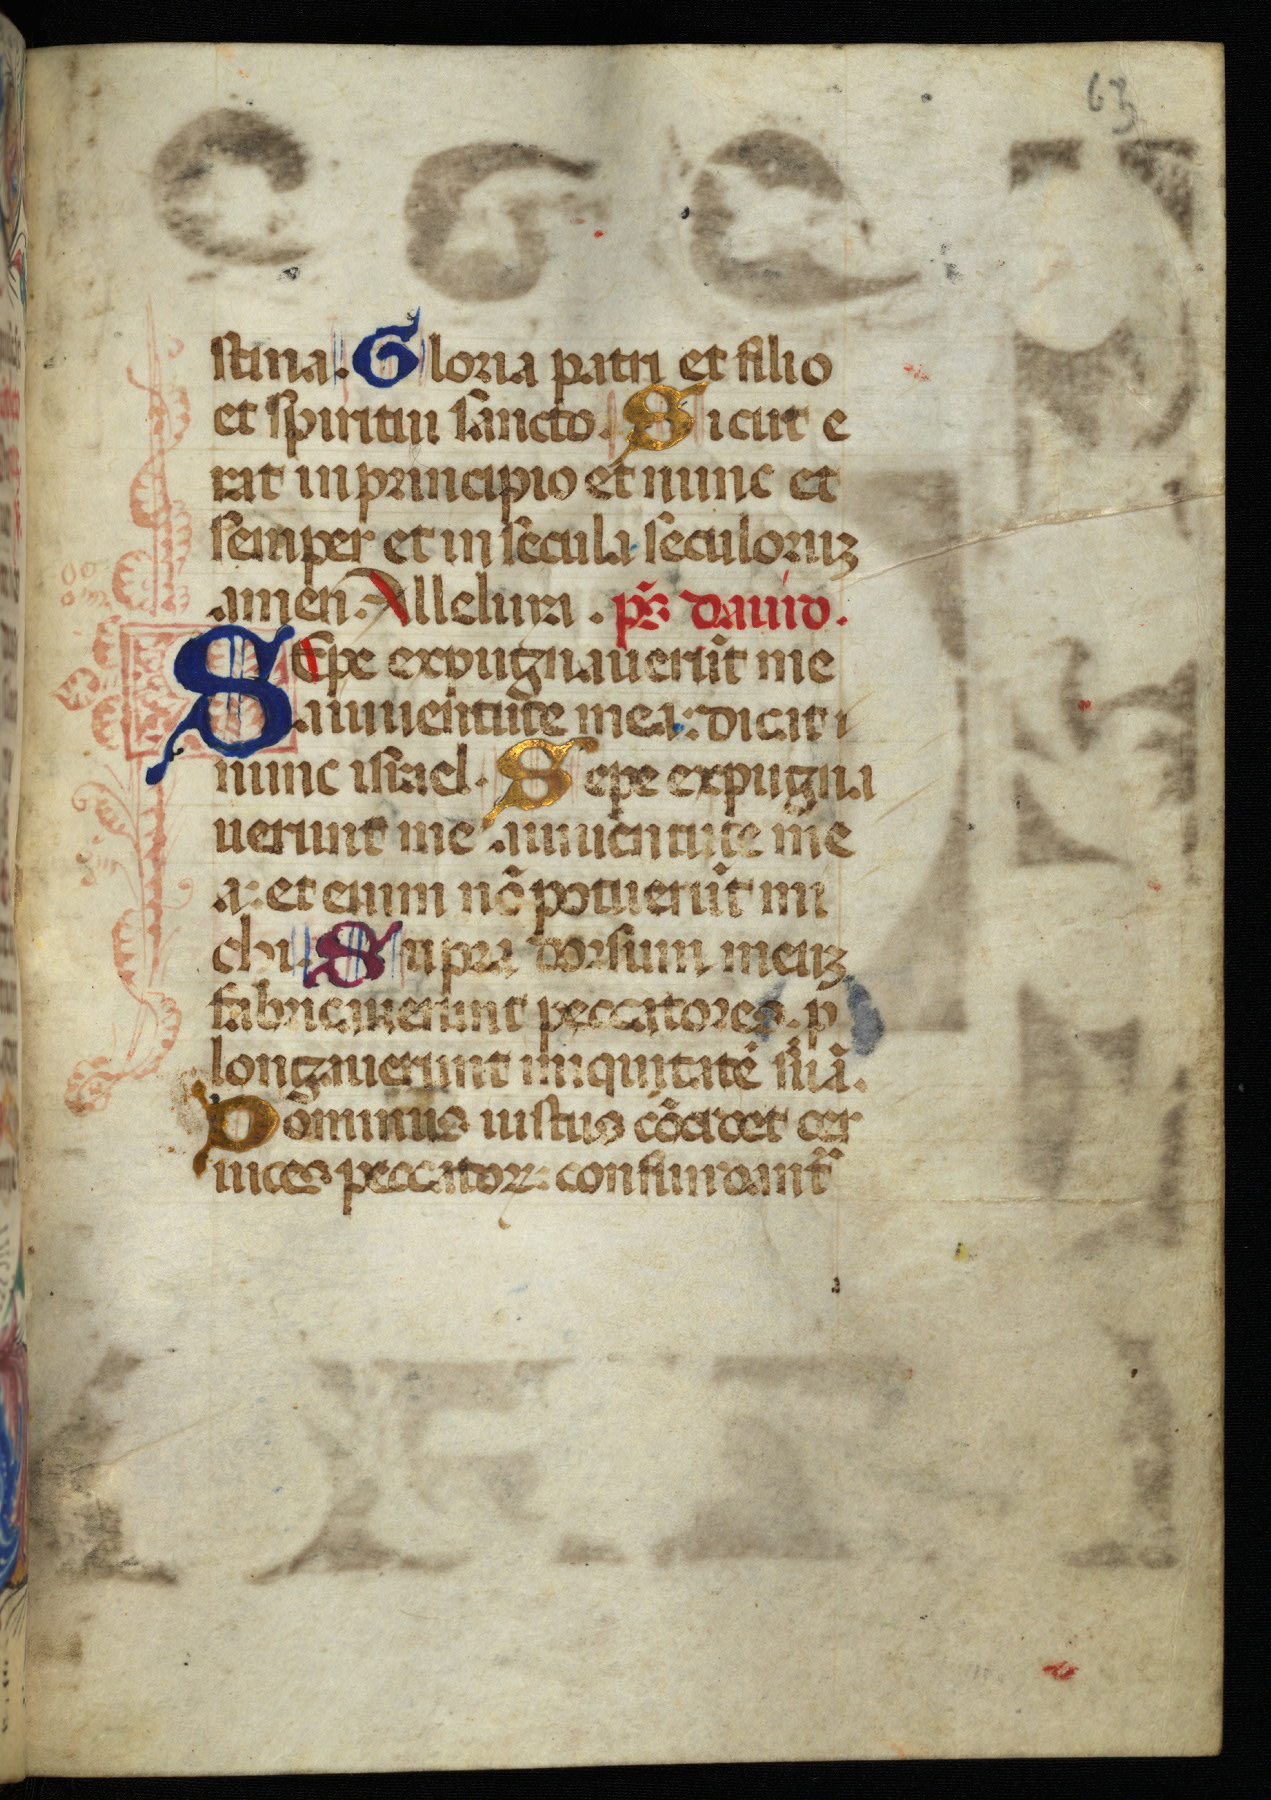 63
stina. Gloria patri et filio
et spiritui sancto. Sicut e
rat in principio et nunc et
semper et in secula seculoruz
amen. Alleluya. ps̄ dauid.
SEpe expugnauerūt me
a iuuentute mea: dicat
nunc israel. Sepe expugna
uerunt me a iuuentute me
a: et enim nō potuerūt mi
chi. Supra dorsum meuz
fabricauerunt peccatores. p
longauerunt iniquitatē suā.
Dōminus iustus cōcidet cer
uices peccatorꝝ: confundant᷑